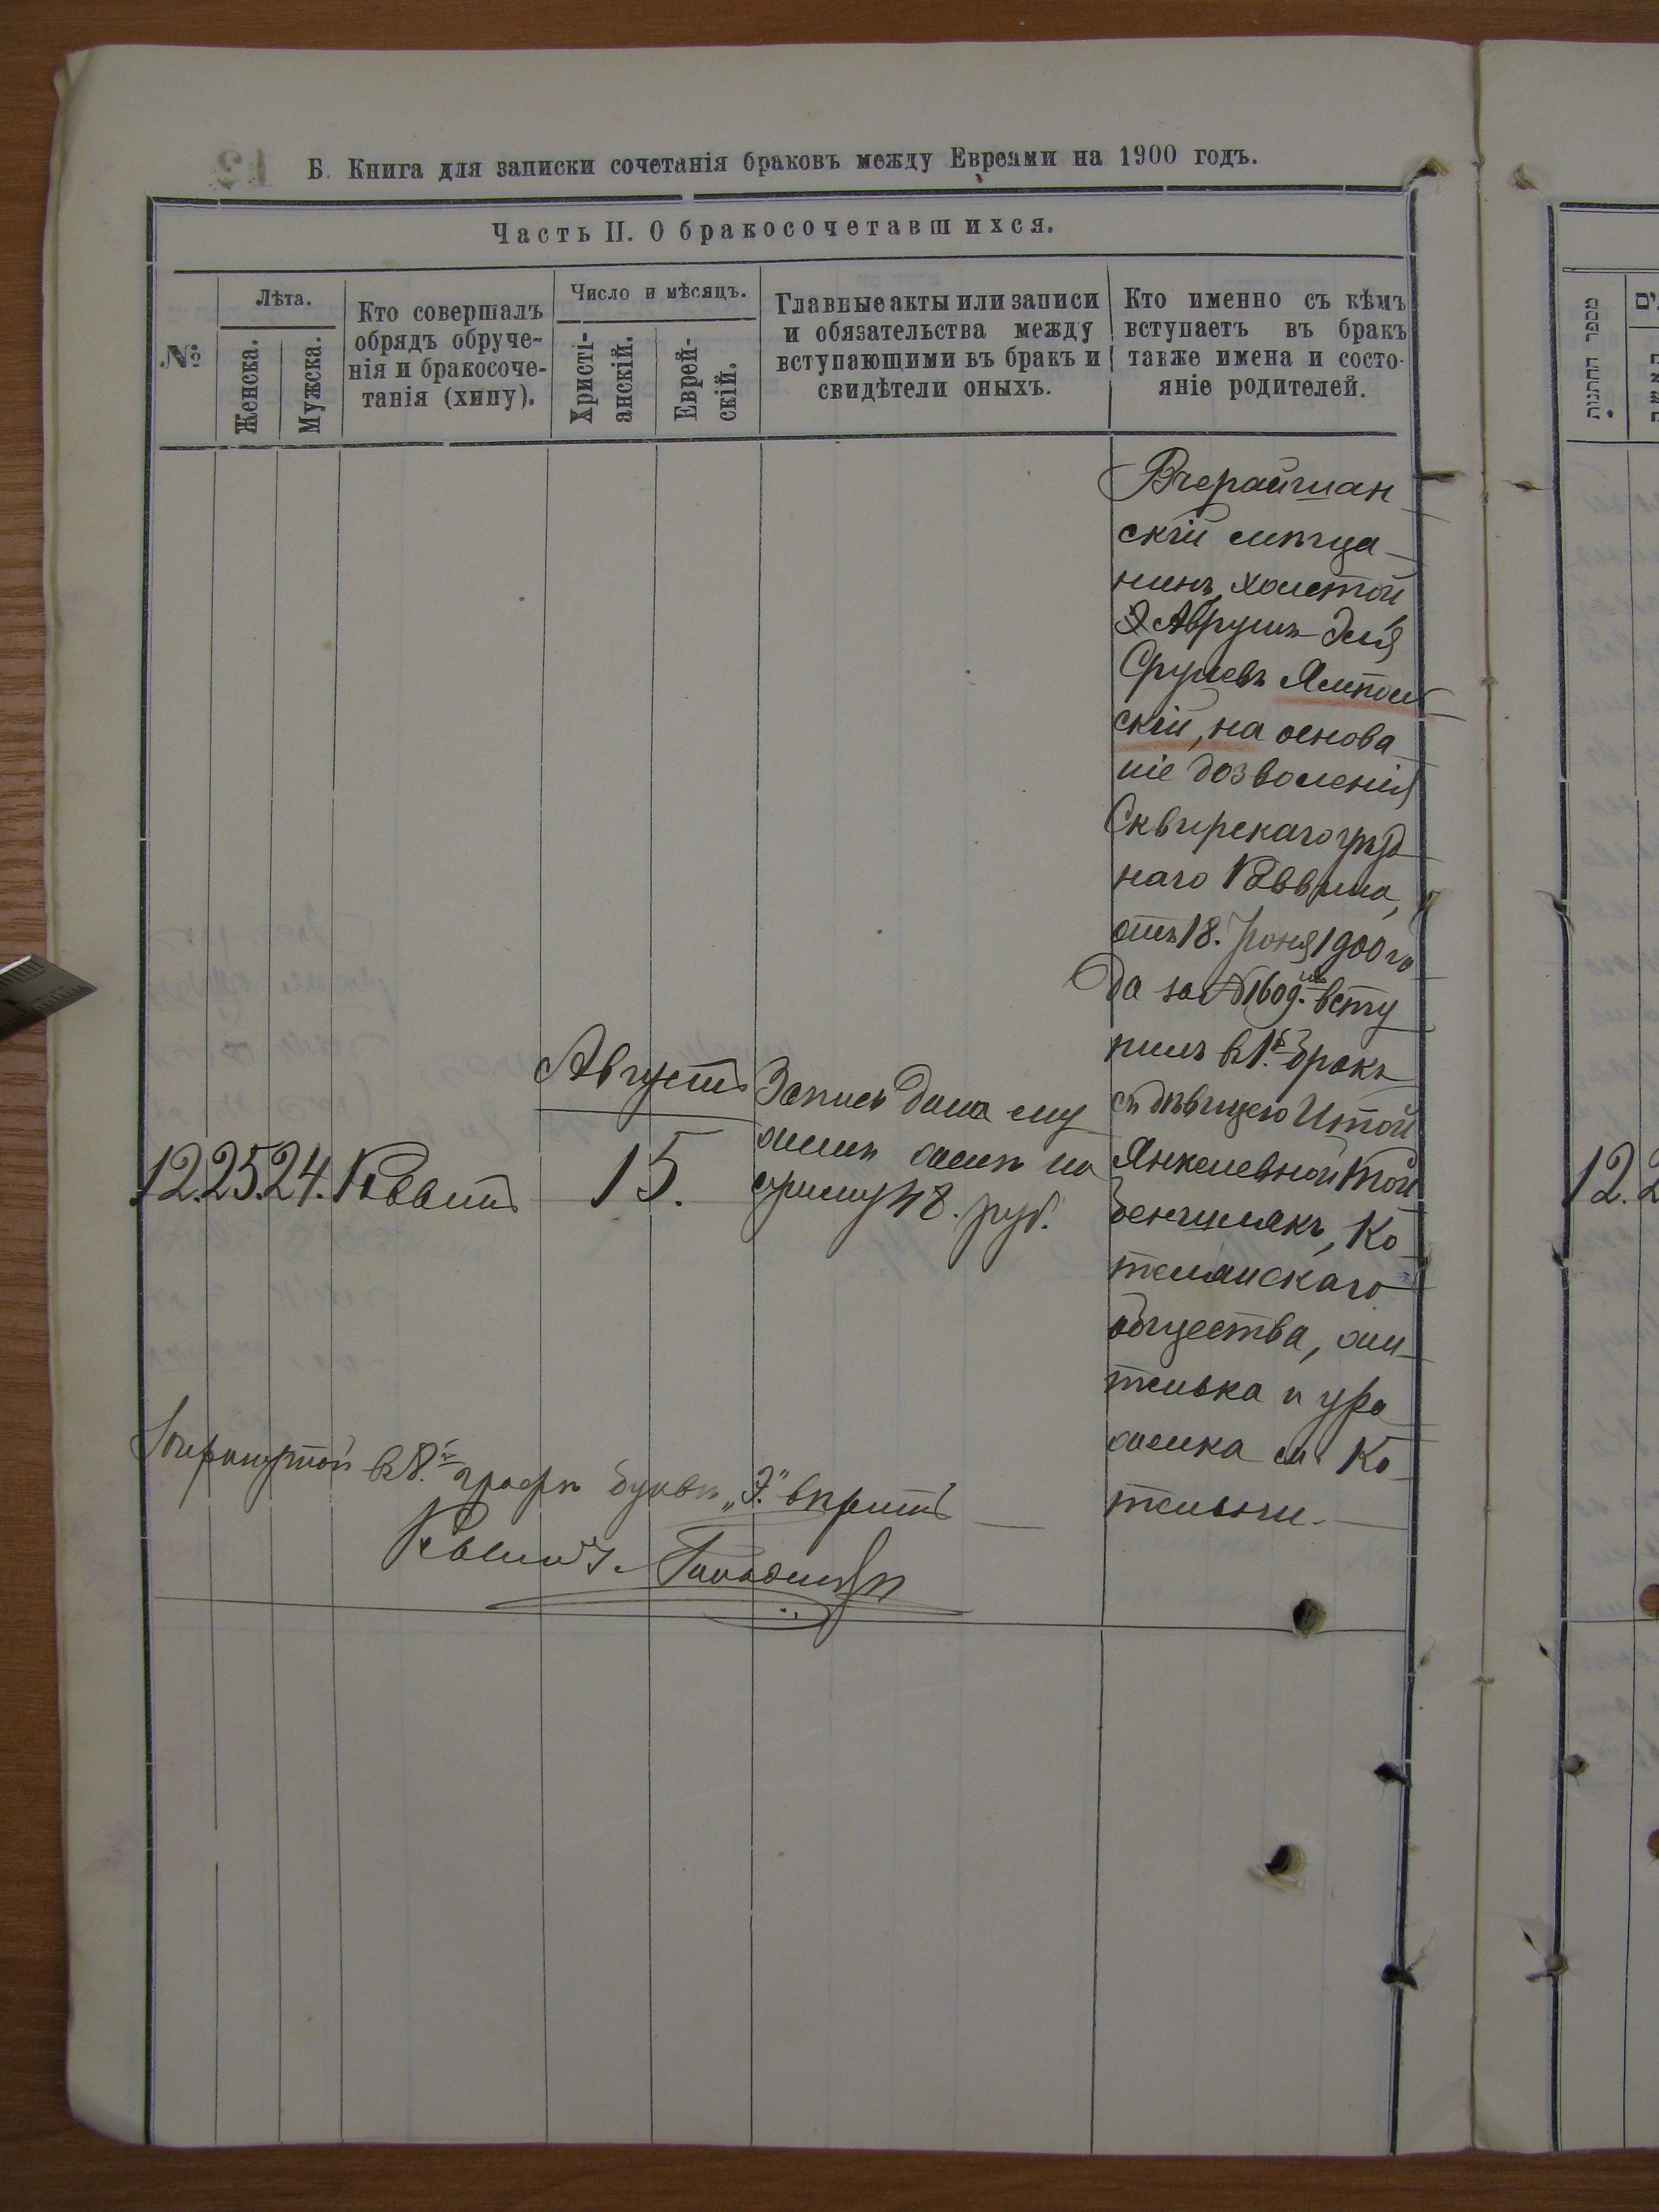 Б. Книга для записки сочетанія браковъ между Евреями на 1900 годъ.
Часть II. О бракосочетавшихся.
№
Лѣта.
Женска.
Мужска.
Кто совершалъ
обрядъ обруче-
нія и бракосоче-
танія (хипу).
Число и мѣсяцъ.
Христі-
анскій.
Еврей-
скій.
Главные акты или записи
и обязательства между
вступающими въ бракъ и
свидѣтели оныхъ.
Кто именно съ кѣмъ
вступаетъ въ бракъ
также имена и состо-
яніе родителей.
12. 25. 24. Раввинъ
Августъ
15.
Запись дана
на
сумму 48. руб.
Вчерайшан
скій мѣща-
нинъ, холостой
Аврумъ Эля
Срулевъ Ямполь
скій, на основа
ніе дозволенія
Сквирскаго уѣзд
наго Раввина,
отъ 18. Іюня 1900 го
да за № 1609. всту
пилъ въ 1й бракъ
съ дѣвицею Итой
Янкелевной
Ко
тельнскаго
общества, жи
телька и уро
женка м. Ко
тельни.
въ 8.й графѣ буква „Э." вѣрить
Раввинъ
מספר החתונות
12. 2